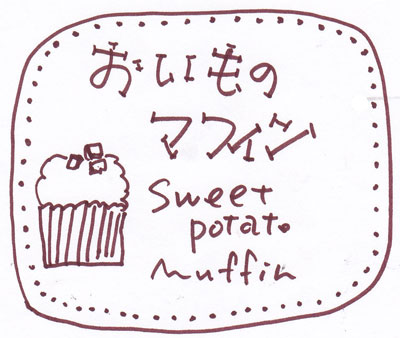 おいもの
マフィン
sweet
potato
muffin